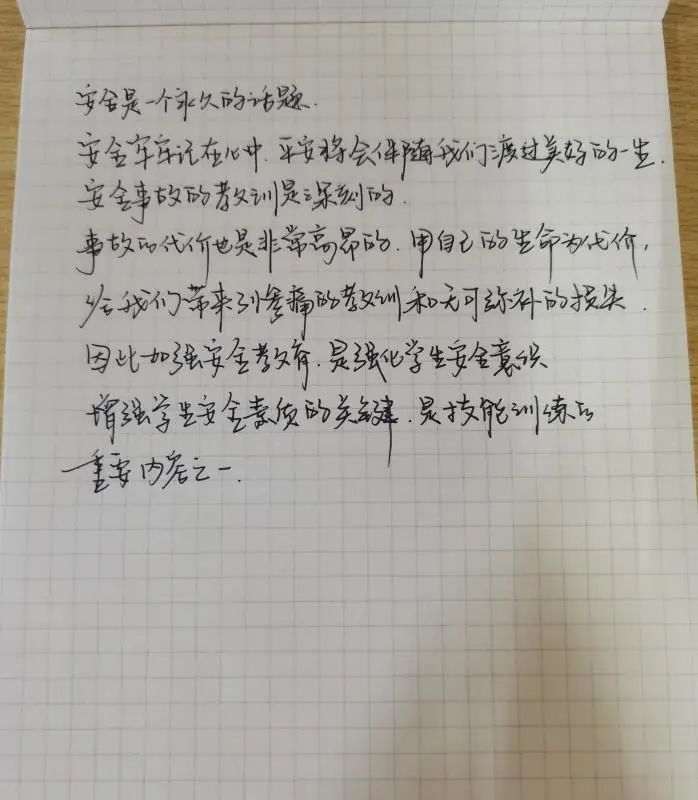 安全是一个永久的话题.
安全牢牢记在心中.平安将会伴随我们渡过美好的一生.
安全事故的教训是深刻的.
事故的代价也是非常高昂的.用自己的生命为代价,
给我们带来到惨痛的教训和无可弥补的损失.
因此加强安全教育.是强化学生安全意识
增强学生安全素质的关键.是技能训练的
重要内容之一.